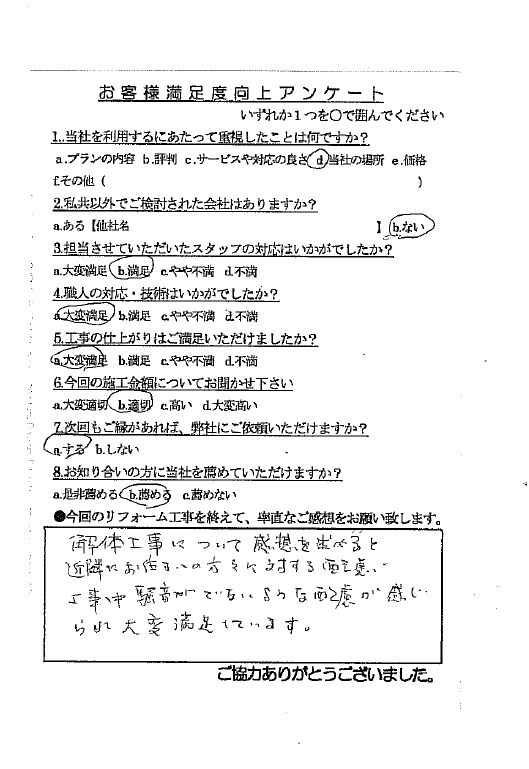 お客様満足度向上アンケート
いずれか1つを〇で囲んでください
1.当社を利用するにあたって重視したことは何ですか?
a.プランの内容 b.評判 c.サービスや対応の良さ d.当社の場所 e.価格
f.その他 ( )
2.私共以外でご検討された会社はありますか?
a.ある【他社名 】 b.ない
3.担当させていただいたスタッフの対応はいかがでしたか?
a.大変満足 b.満足 c.やや不満 d.不満
4.職人の対応・技術はいかがでしたか?
a.大変満足 b.満足 c.やや不満 d.不満
5.工事の仕上がりはご満足いただけましたか?
a.大変満足 b.満足 c.やや不満 d.不満
6.今回の施工金額についてお聞かせ下さい
a.大変適切 b.適切 c.高い d.大変高い
7.次回もご縁があれば、弊社にご依頼いただけますか?
a.する b.しない
8.お知り合いの方に当社を薦めていただけますか?
a.是非薦める b.薦める c.薦めない
●今回のリフォーム工事を終えて、率直なご感想をお願い致します。
解体工事について感想を述べると
近隣にお住まいの方々に対する配慮
工事中騒音がでないような配慮が感じ
られ大変満足しています。
ご協力ありがとうございました。